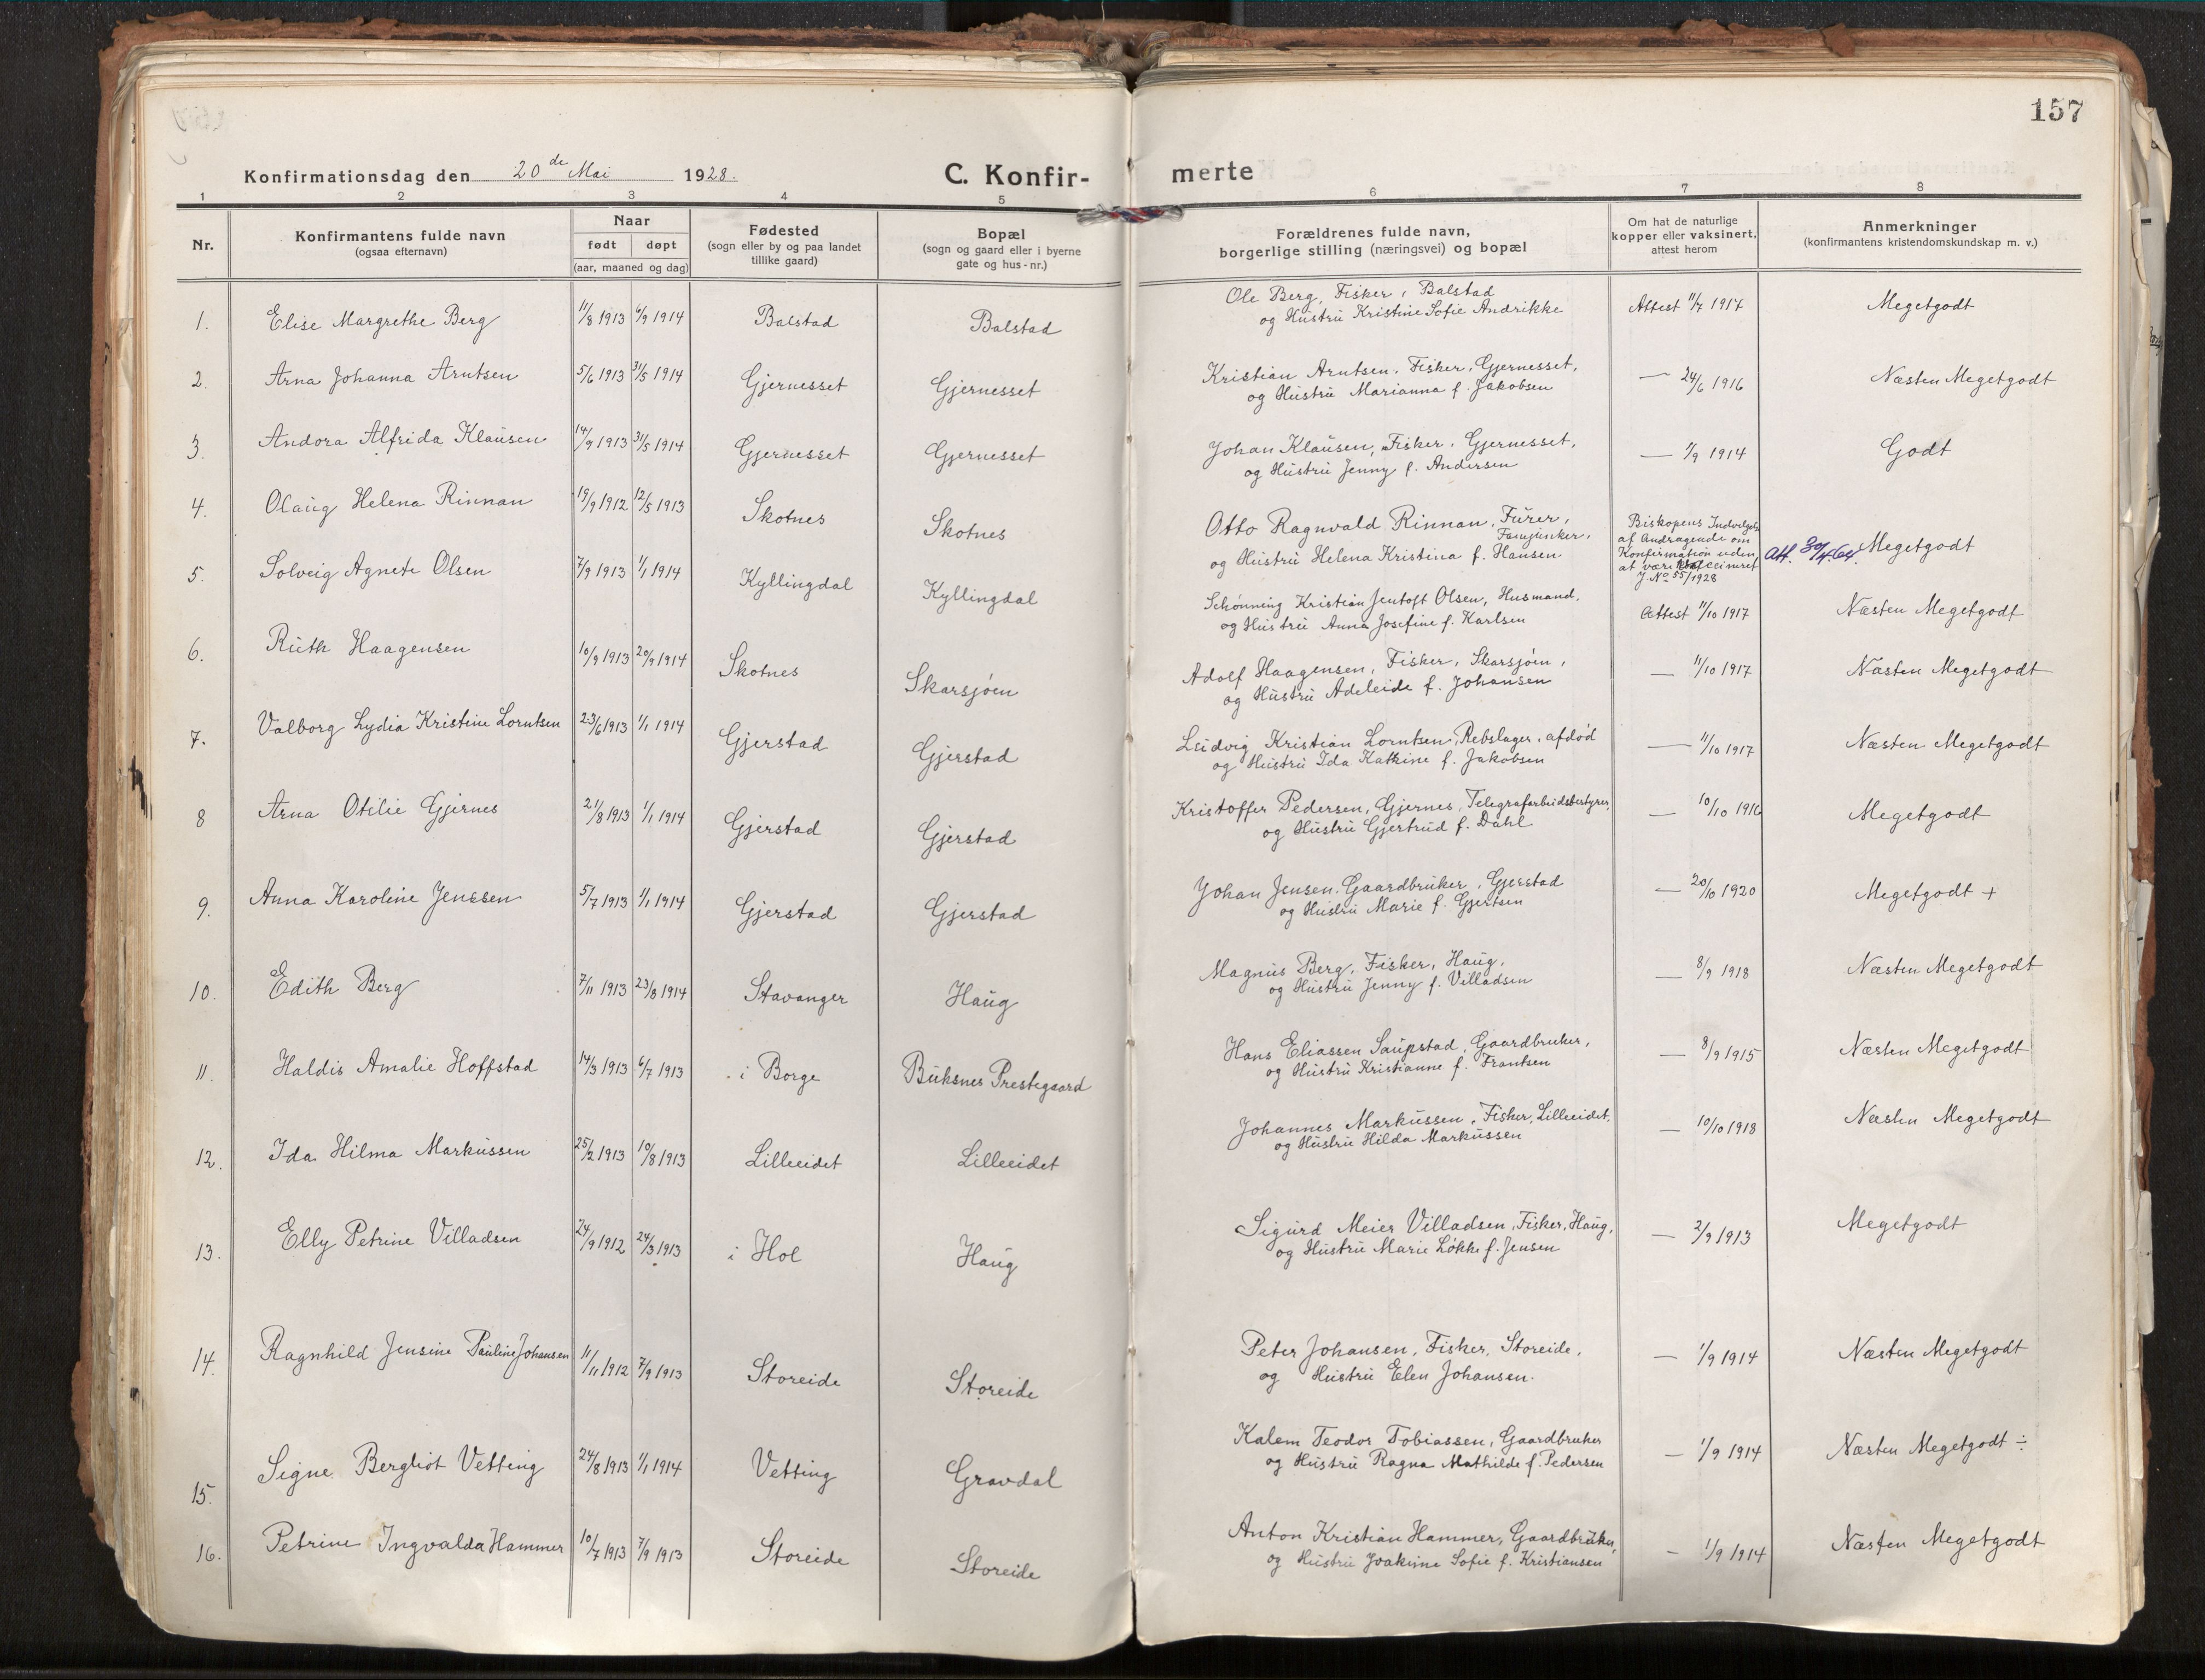 157
Konfirmationsdag den 20de Mai 1928.
C. Konfirmerte
1 2 3 4 5 6 7 8
Nr.
Konfirmantens fulde navn
(ogsaa efternavn)
Naar
født døpt
(aar, maaned og dag)
Fødested
(sogn eller by og paa landet
tillike gaard)
Bopæl
(sogn og gaard eller i byerne
gate og hus-nr.)
Forældrenes fulde navn,
borgerlige stilling (næringsvei) og bopæl
Om hat de naturlige
kopper eller vaksinert,
attest herom
Anmerkninger
(konfirmantens kristendomskundskap m. v.)
1. Elise Margrethe Berg 11/8 1913 6/9 1914 Balstad Balstad
Ole Berg, Fisker, Balstad
og Hustru Kristine Sofie Andrikke
Attest 11/7 1917 Megetgodt
2. Arna Johanna Arntsen 5/6 1913 31/5 1914 Gjernesset Gjernesset
Kristian Arntsen, Fisker, Gjernesset,
og Hustru Marianna f. Jakobsen
— 24/6 1916 Næsten Megetgodt
3. Andora Alfrida Klausen 14/9 1913 31/5 1914 Gjernesset Gjernesset
Johan Klausen, Fisker, Gjernesset,
og Hustru Jenny f. Andersen
— 1/9 1914 Godt
4. Olaug Helena Rinnan 19/9 1912 12/5 1913 Skotnes Skotnes
Otto Ragnvald Rinnan, Furer,
Fanejunker,
og Hustru Helena Kristina f. Hansen
Biskopens Indvilgelse
af Andragende om
Konfirmation uden
at være vaccineret
J. No 55/1928
Att. 30/4.64. Megetgodt
5. Solveig Agnete Olsen 7/9 1913 1/1 1914 Kyllingdal Kyllingdal
Schønning Kristian Jentoft Olsen, Husmand,
og Hustru Anna Josefine f. Karlsen
Attest 11/10 1917 Næsten Megetgodt
6. Ruth Haagensen 10/9 1913 20/9 1914 Skotnes Skarsjøen
Adolf Haagensen, Fisker, Skarsjøen,
og Hustru Adeleide f. Johansen
— 11/10 1917 Næsten Megetgodt
7. Valborg Lydia Kristine Lorntsen 23/6 1913 1/1 1914 Gjerstad Gjerstad
Ludvig Kristian Lorntsen, Rebslager, afdød
og Hustru Ida Katrine f. Jakobsen
— 11/10 1917 Næsten Megetgodt
8 Arna Otilie Gjernes 21/8 1913 1/1 1914 Gjerstad Gjerstad
Kristoffer Pedersen, Gjernes, Telegrafarbeidsbestyrer,
og Hustru Gjertrud f. Dahl
— 10/10 1916 Megetgodt
9. Anna Karoline Jenssen 5/7 1913 1/1 1914 Gjerstad Gjerstad
Johan Jensen, Gaardbruker, Gjerstad
og Hustru Marie f. Gjertsen
— 20/10 1920 Megetgodt +
10. Edith Berg 7/11 1913 23/8 1914 Stavanger Haug
Magnus Berg, Fisker, Haug,
og Hustru Jenny f. Villadsen
— 8/9 1918 Næsten Megetgodt
11. Haldis Amalie Hoffstad 14/3 1913 6/7 1913 i Borge Buksnes Prestegaard
Hans Eliassen Saupstad, Gaardbruker,
og Hustru Kristianne f. Frantsen
— 8/9 1915 Næsten Megetgodt
12. Ida Hilma Markussen 25/2 1913 10/8 1913 Lilleeidet Lilleeidet
Johannes Markussen, Fisker, Lilleeidet,
og Hustru Hilda Markussen
— 10/10 1918 Næsten Megetgodt
13. Elly Petrine Villadsen 24/9 1912 24/3 1913 i Hol Haug
Sigurd Meier Villadsen, Fisker, Haug,
og Hustru Marie Løkke f. Jensen
— 2/9 1913 Megetgodt
14. Ragnhild Jensine Pauline Johansen 11/11 1912 7/9 1913 Storeide Storeide
Peter Johansen, Fisker, Storeide,
og Hustru Elen Johansen.
— 1/9 1914 Næsten Megetgodt
15. Signe Bergliot Vetting 24/8 1913 1/1 1914 Vetting Gravdal
Kalem Teodor Tobiassen, Gaardbruker
og Hustru Ragna Mathilde f. Pedersen
— 1/9 1914 Næsten Megetgodt ÷
16. Petrine Ingvalda Hammer 10/7 1913 7/9 1913 Storeide Storeide
Anton Kristian Hammer, Gaardbruker,
og Hustru Joakime Sofie f. Kristiansen
— 1/9 1914 Næsten Megetgodt